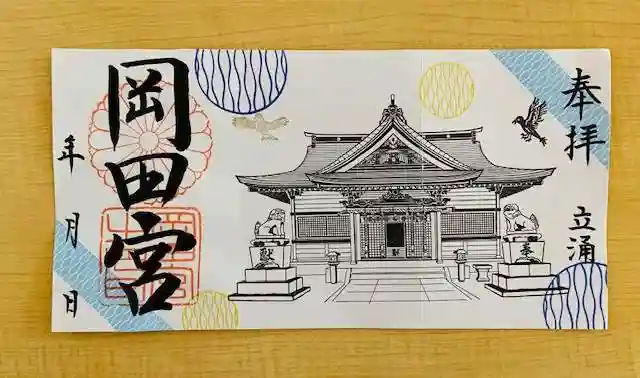 奉拝
立涌
奉
献
岡田宮
年月日